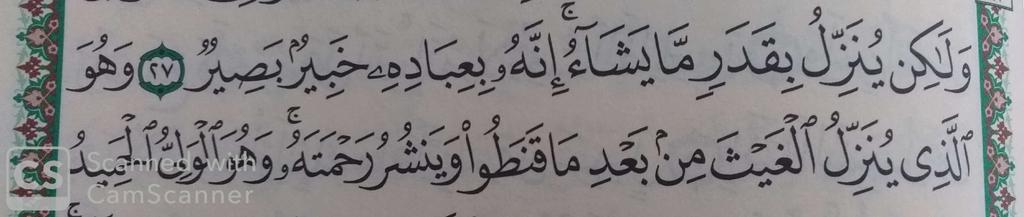 وَلَٰكِن يُنَزِّلُ بِقَدَرٍ مَّا يَشَآءُ ۚ إِنَّهُۥ بِعِبَادِهِۦ خَبِيرٌۢ بَصِيرٌ ٢٧ وَهُوَ
ٱلَّذِى يُنَزِّلُ ٱلْغَيْثَ مِنۢ بَعْدِ مَا قَنَطُوا۟ وَيَنشُرُ رَحْمَتَهُۥ ۚ وَهُوَ ٱلْوَلِىُّ ٱلْحَمِيدُ
CS Scanned with
CamScanner